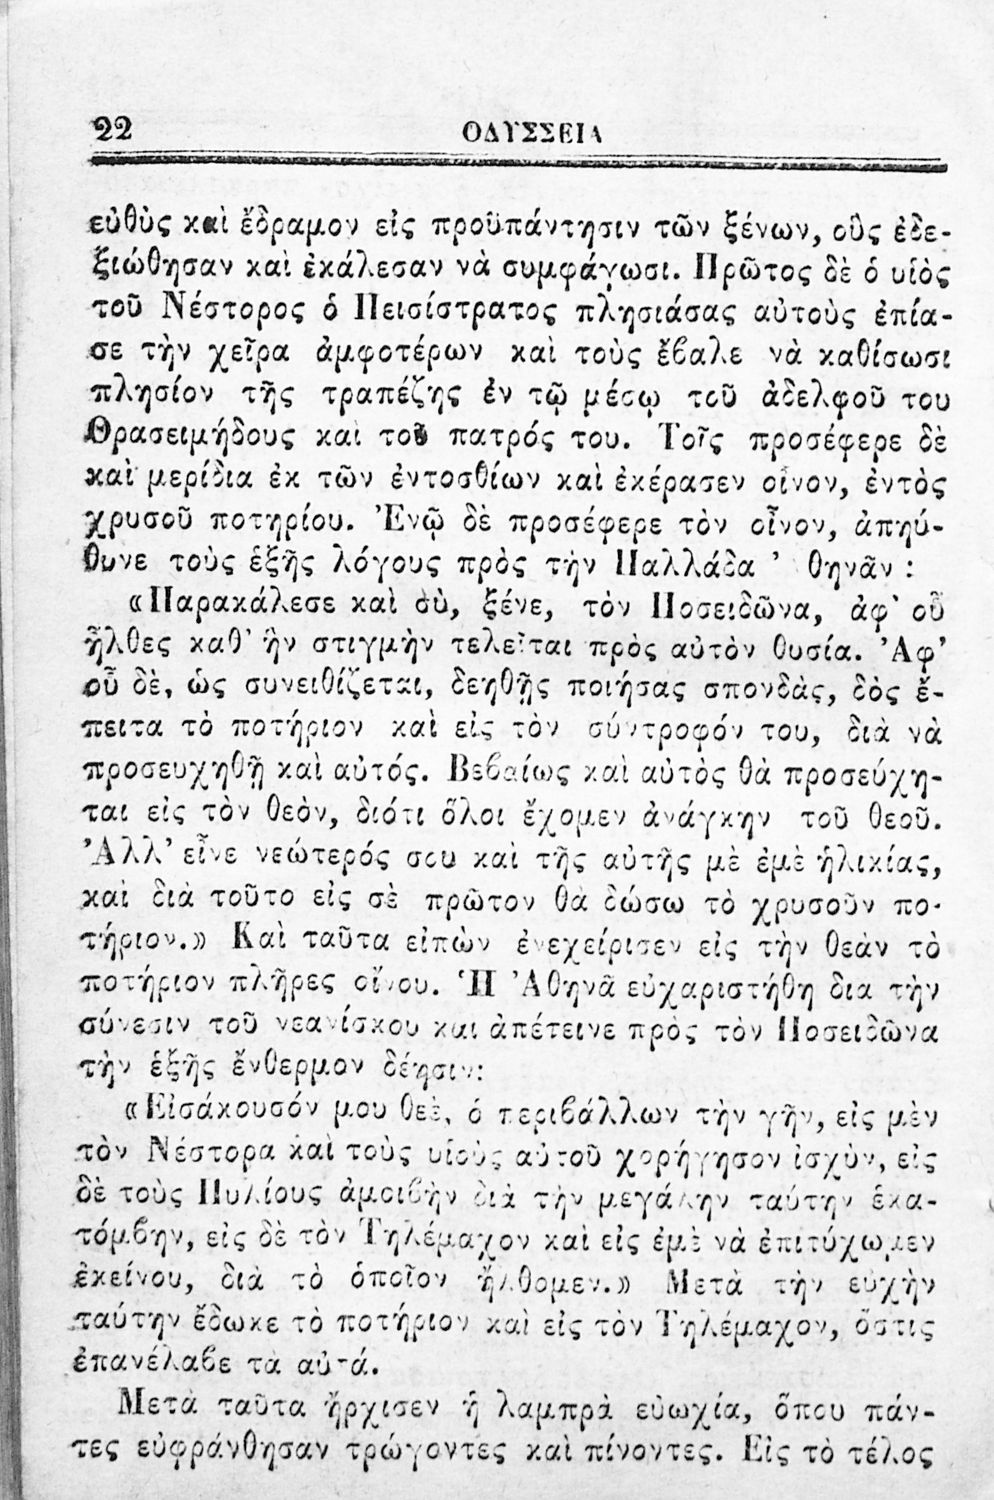 22 ΟΔΥΣΣΕΙΑ
εὐθὺς καὶ ἔδραμον εἰς προϋπάντησιν τῶν ξένων, οὓς ἐδε-
ξιώθησαν καὶ ἐκάλεσαν νὰ συμφάγωσι. Πρῶτος δὲ ὁ υἱὸς
τοῦ Νέστορος ὁ Πεισίστρατος πλησιάσας αὐτοὺς ἐπία-
σε τὴν χεῖρα ἀμφοτέρων καὶ τοὺς ἔβαλε νὰ καθίσωσι
πλησίον τῆς τραπέζης ἐν τῷ μέσῳ τοῦ ἀδελφοῦ του
Θρασειμήδους καὶ τοῦ πατρός του. Τοῖς προσέφερε δὲ
καὶ μερίδια ἐκ τῶν ἐντοσθίων καὶ ἐκέρασεν οἶνον, ἐντὸς
χρυσοῦ ποτηρίου. Ἐνῷ δὲ προσέφερε τὸν οἶνον, ἀπηύ-
θυνε τοὺς ἑξῆς λόγους πρὸς τὴν Παλλάδα ᾿ θηνᾶν :
«Παρακάλεσε καὶ σὺ, ξένε, τὸν Ποσειδῶνα, ἀφ' οὗ
ἦλθες καθ' ἣν στιγμὴν τελεῖται πρὸς αὐτὸν θυσία. Ἀφ'
οὗ δὲ, ὡς συνειθίζεται, δεηθῇς ποιήσας σπονδὰς, δὸς ἔ-
πειτα τὸ ποτήριον καὶ εἰς τὸν σύντροφόν του, διὰ νὰ
προσευχηθῇ καὶ αὐτός. Βεβαίως καὶ αὐτὸς θὰ προσεύχη-
ται εἰς τὸν θεὸν, διότι ὅλοι ἔχομεν ἀνάγκην τοῦ θεοῦ.
Ἀλλ' εἶνε νεώτερός σου καὶ τῆς αὐτῆς μὲ ἐμὲ ἡλικίας,
καὶ διὰ τοῦτο εἰς σὲ πρῶτον θὰ δώσω τὸ χρυσοῦν πο-
τήριον.» Καὶ ταῦτα εἰπὼν ἐνεχείρισεν εἰς τὴν θεὰν τὸ
ποτήριον πλῆρες οἴνου. Ἡ Ἀθηνᾶ εὐχαριστήθη δια τὴν
σύνεσιν τοῦ νεανίσκου και ἀπέτεινε πρὸς τὸν Ποσειδῶνα
τὴν ἑξῆς ἔνθερμον δέησιν:
«Εἰσάκουσόν μου θεὲ, ὁ περιβάλλων τὴν γῆν, εἰς μὲν
τὸν Νέστορα καὶ τοὺς υἱοὺς αὐτοῦ χορήγησον ἰσχὺν, εἰς
δὲ τοὺς Πυλίους ἀμοιβὴν διὰ τὴν μεγάλην ταύτην ἑκα-
τόμβην, εἰς δὲ τὸν Τηλέμαχον καὶ εἰς ἐμὲ νὰ ἐπιτύχωμεν
ἐκείνου, διὰ τὸ ὁποῖον ἤλθομεν.» Μετὰ τὴν εὐχὴν
ταύτην ἔδωκε τὸ ποτήριον καὶ εἰς τὸν Τηλέμαχον, ὅστις
ἐπανέλαβε τὰ αὐτά.
Μετὰ ταῦτα ἤρχισεν ἡ λαμπρὰ εὐωχία, ὅπου πάν-
τες εὐφράνθησαν τρώγοντες καὶ πίνοντες. Εἰς τὸ τέλος